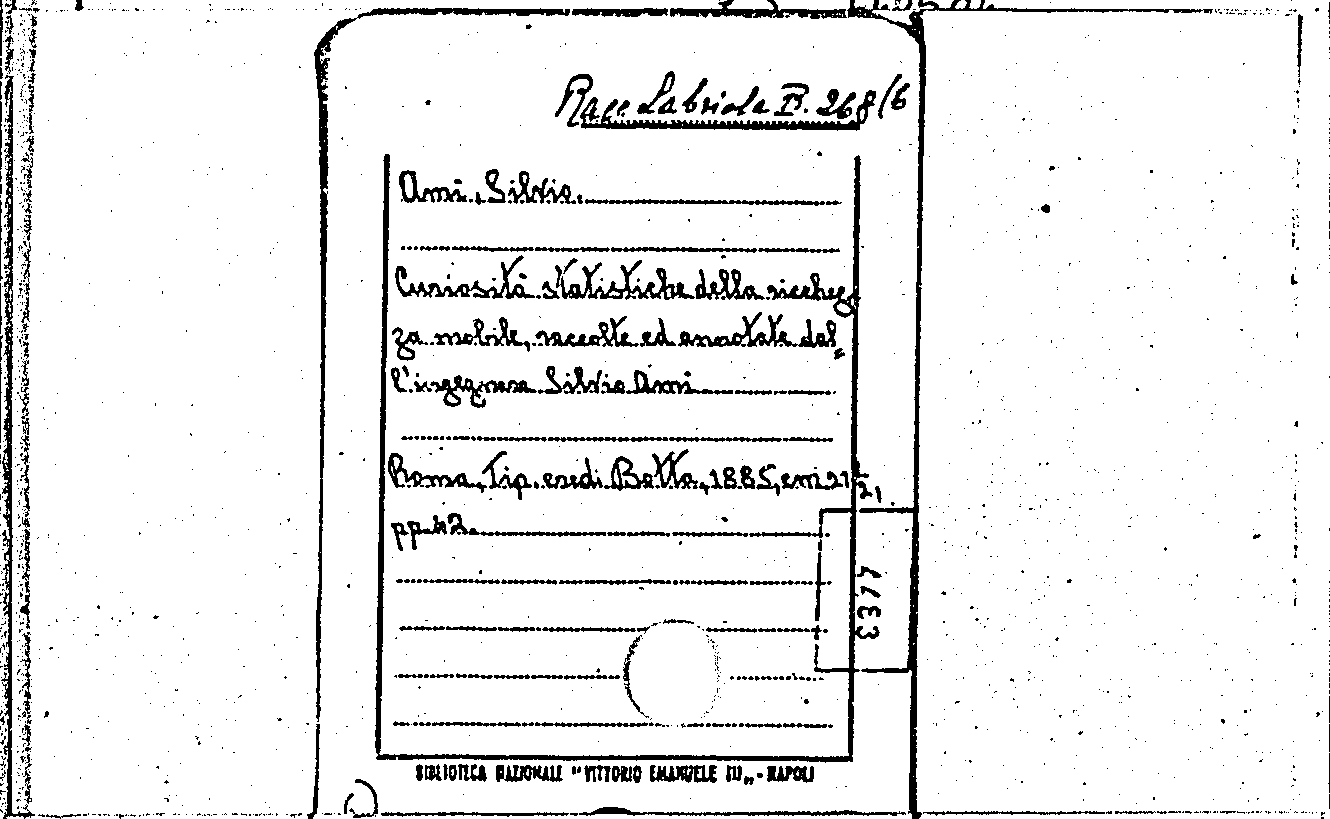 Racc. Labriola B. 268/6
Ami, Silvio.
Curiosità statistiche della ricchez
za mobile, raccolte ed annotate dal
l'ingegnere Silvio Ami
Roma, Tip. eredi Botta, 1885, cm 21
21,
pp. 42.
4733
BIBLIOTECA NAZIONALE "VITTORIO EMANUELE III„ - NAPOLI